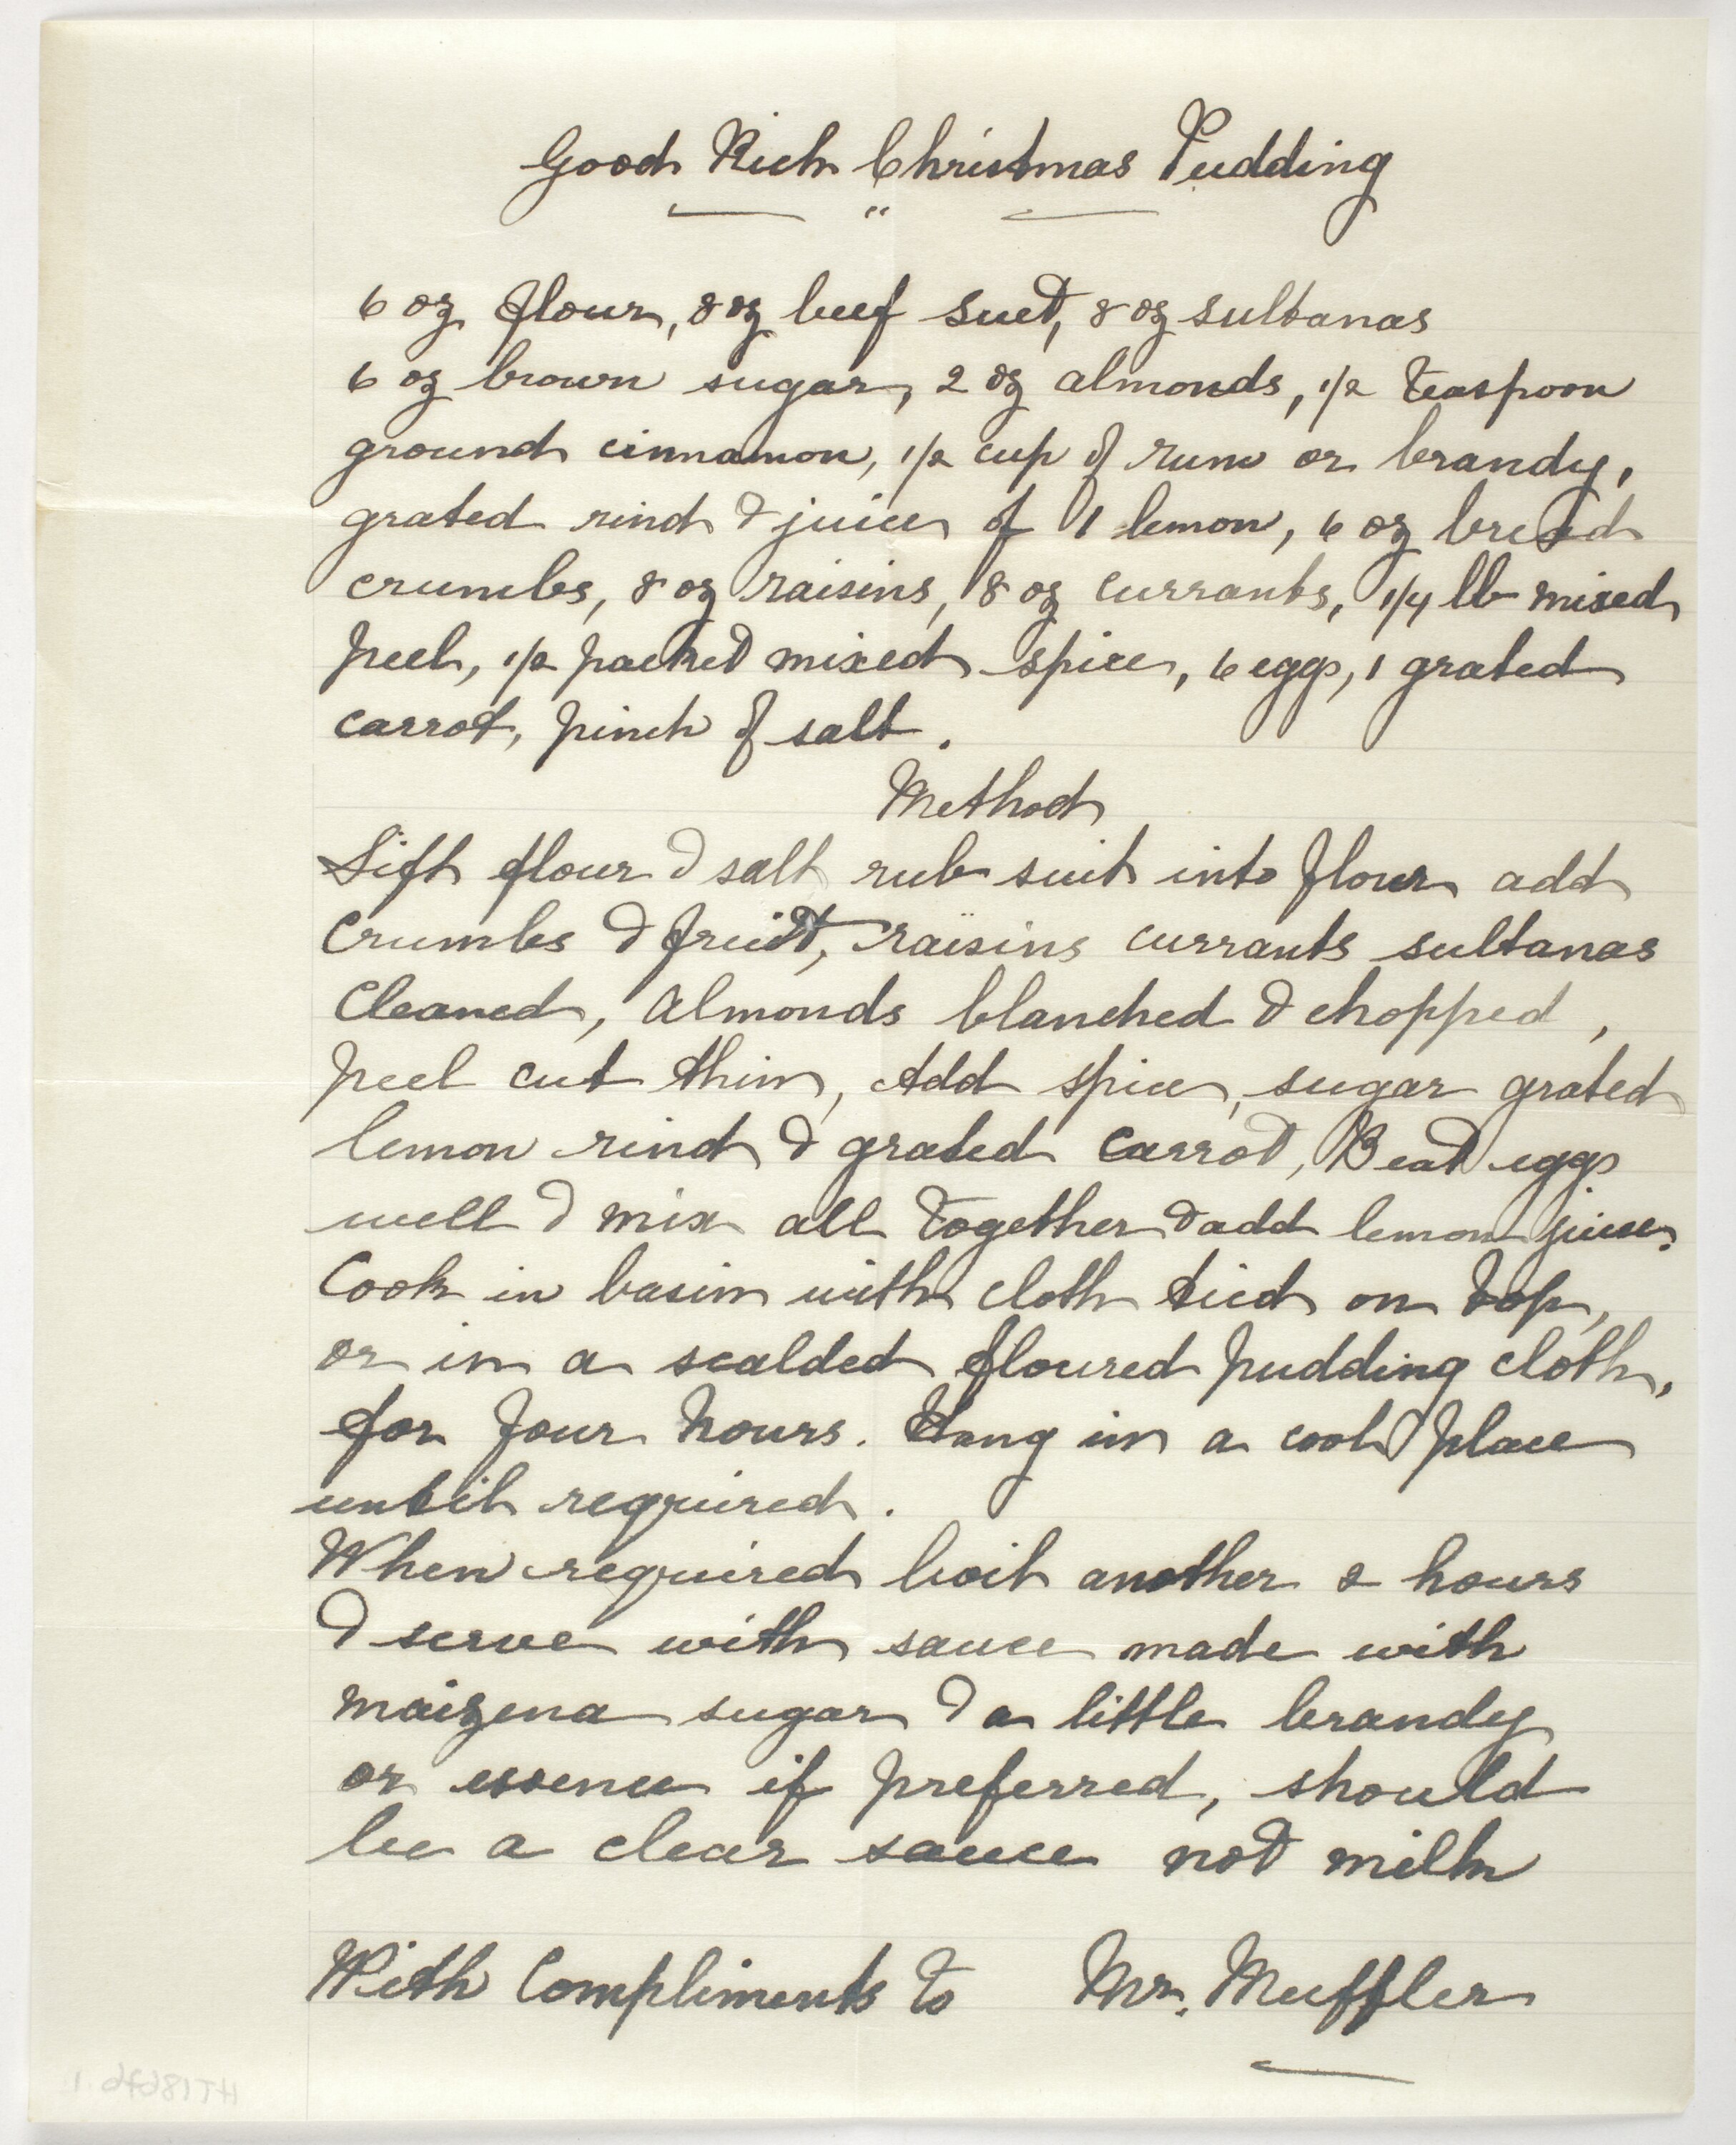 Good Rich Christmas Pudding
"
6 oz flour, 8 oz beef suet, 8 oz sultanas
6 oz brown sugar, 2 oz almonds, 1/2 teaspoon
ground cinnamon, 1/2 cup of rum or brandy,
grated rind & juice of 1 lemon, 6 oz bread
crumbs, 8 oz raisins, 8 oz currants, 1/4 lb mixed
peel, 1/2 packet mixed spice, 6 eggs, 1 grated
carrot, pinch of salt.
Method
Sift flour & salt rub suit into flour add
crumbs & fruit, raisins currants sultanas
cleaned, almonds blanched & chopped,
peel cut thin, Add spice, sugar grated
lemon rind & grated carrot, Beat eggs
well & mix all together & add lemon juice.
Cook in basin with cloth tied on top,
or in a scalded floured pudding cloth,
for four hours. Hang in a cool place
until required.
When required boil another 2 hours
& serve with sauce made with
maizena sugar & a little brandy
or essence if preferred, should
be a clear sauce not milk
With Compliments to Mr. Muffler
HT18676.1